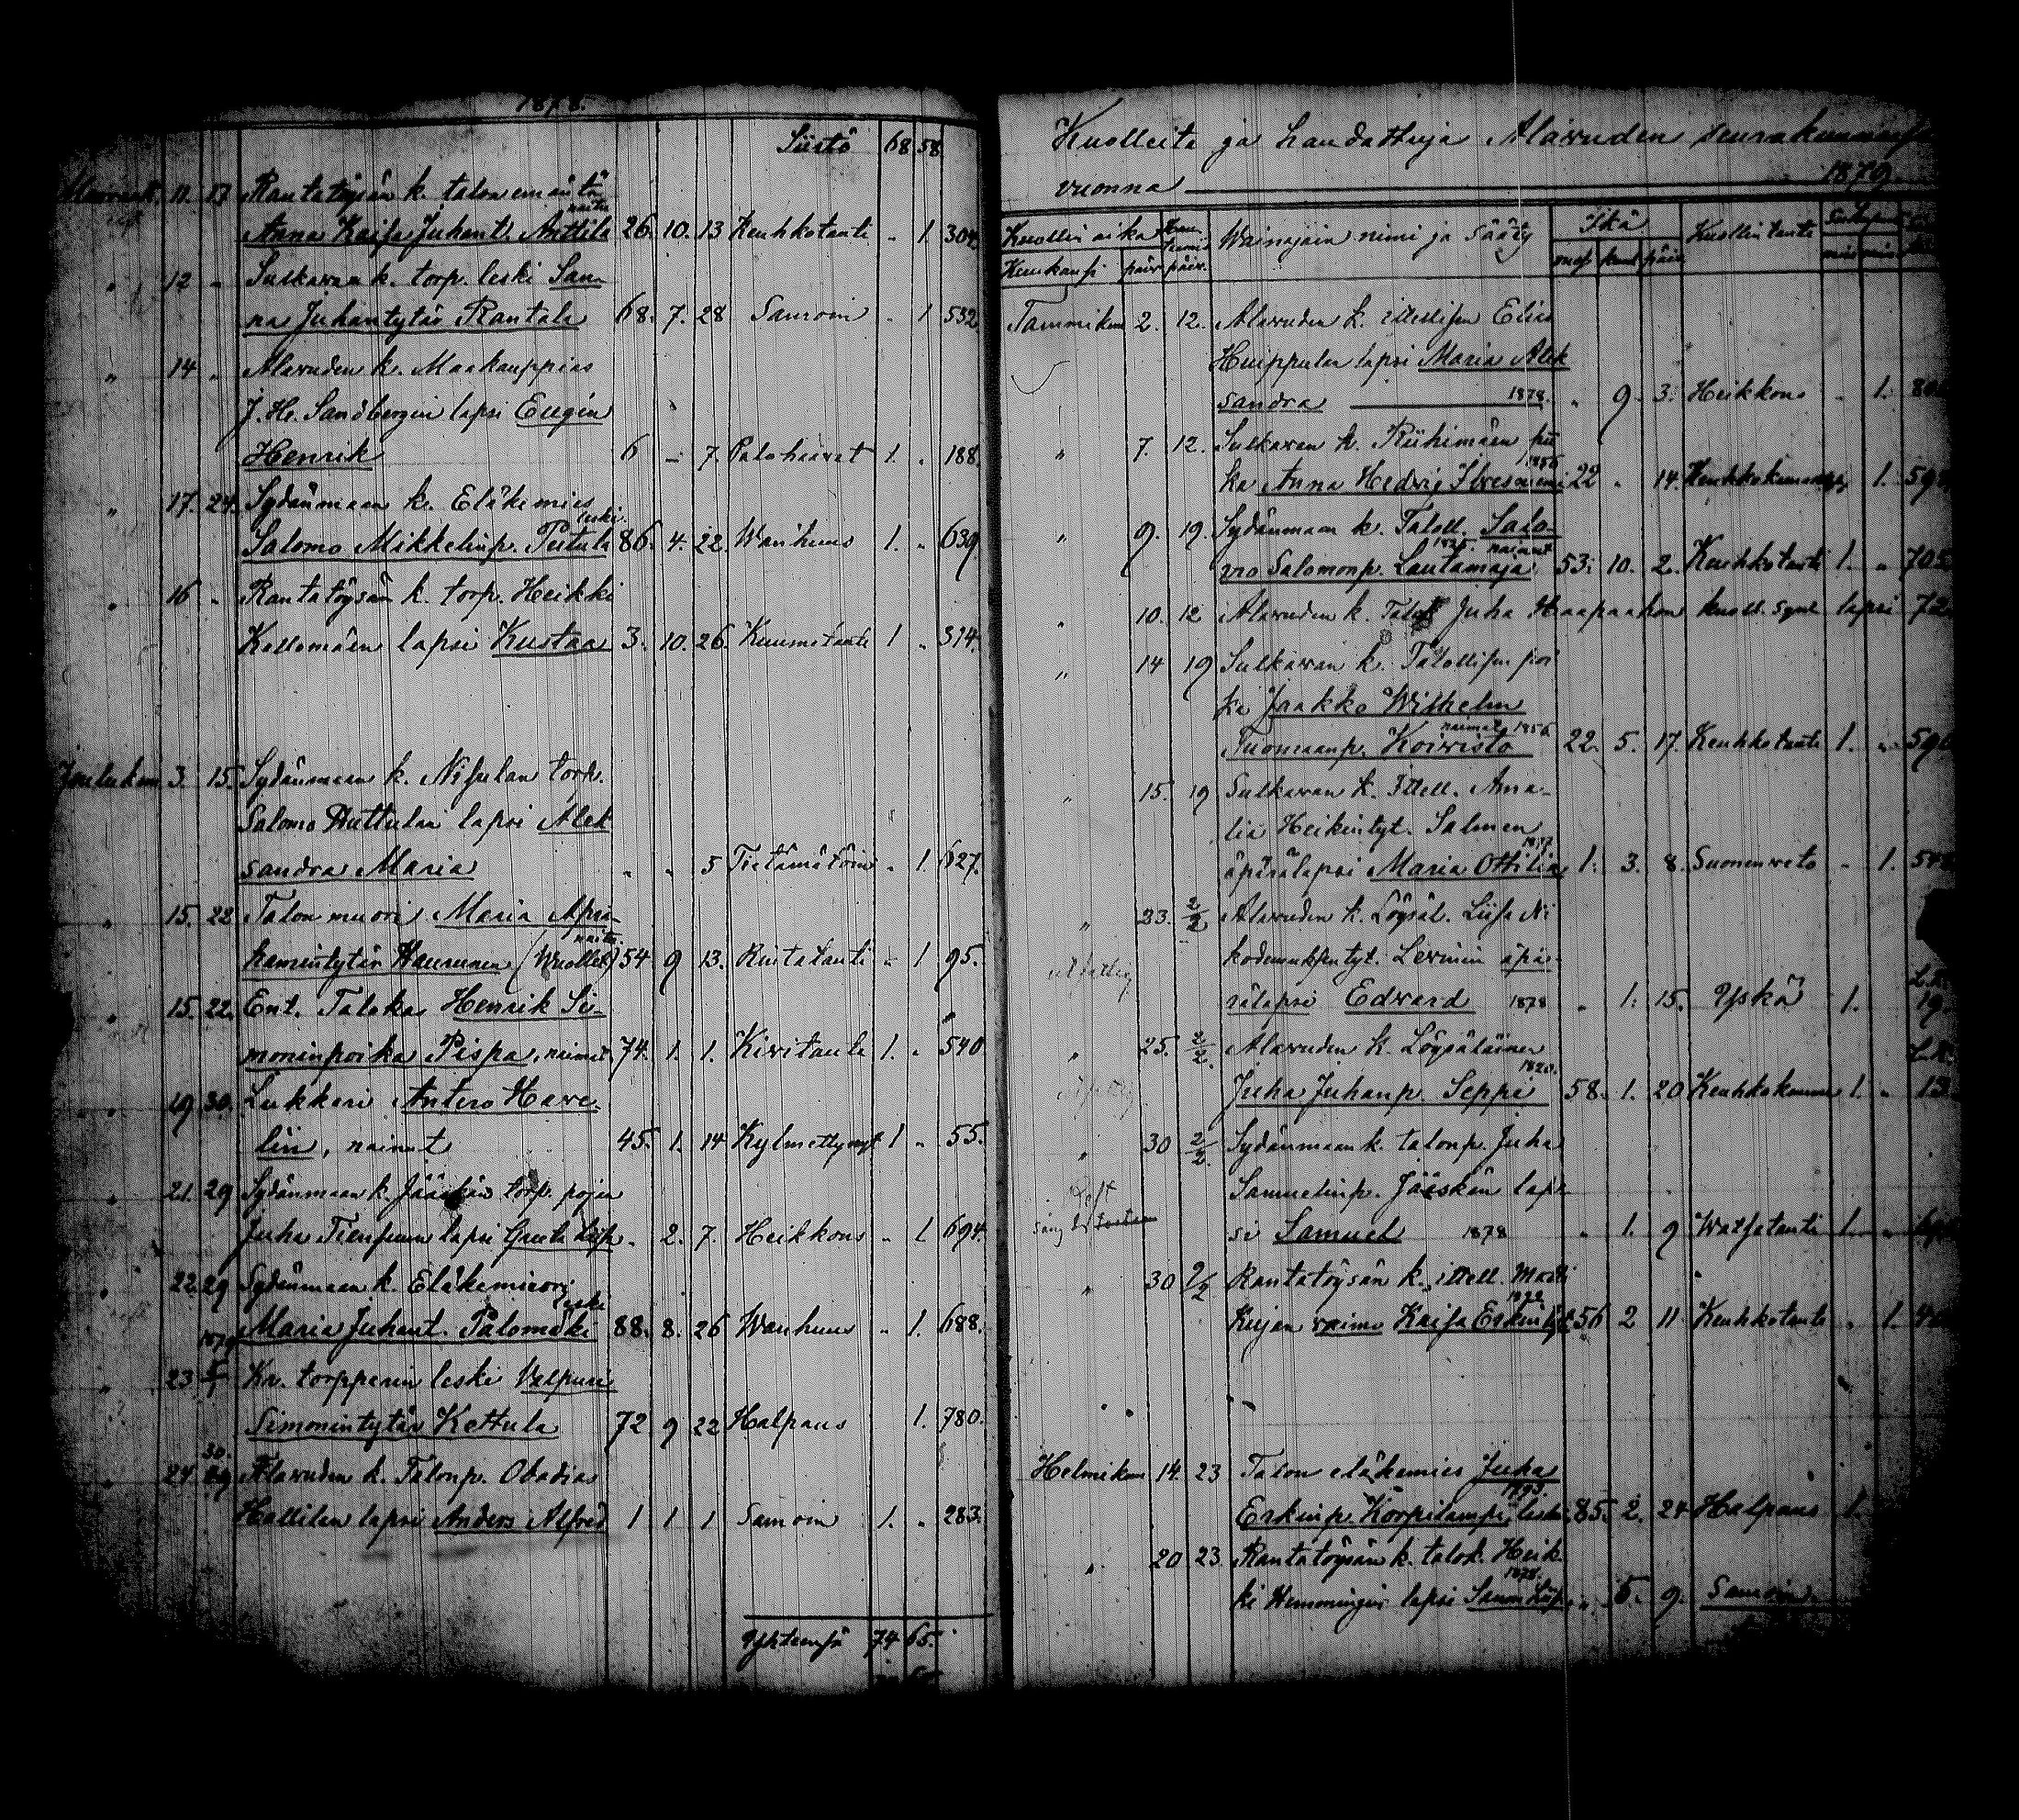 1878.
Siirtö 68 58
Marrask. 11. 17 Rantatöysän k. talon emäntä
naitu
Anna Kaisa Juhant. Anttila 26. 10. 13 Keuhkotauti " 1. 304.
" 12 " Sulkavan k. torp. leski San-
na Juhantytär Rantala 68. 7. 28 Samoin " 1 532
" 14 " Alavuden k. Maakauppias
J. H. Sandbergin lapsi Eugén
Henrik 6 - 7. Palohaavat 1. " 188.
" 17. 24. Sydänmaan k. Eläkemies
leski.
Salomo Mikkelinp. Putula 86. 4. 22. Wanhuus 1. " 639
" 16 " Rantatöysän k. torp. Heikki
Kallomäen lapsi Kustaa 3. 10. 26. Kuumetauti 1 " 314.
Jouluken 3. 15. Sydänmaan k. Nisulan torp.
Salomo Huttulan lapsi Alek
sandra Maria " " 5 Tietämätöin " 1. 627.
" 15. 22 Talon muori Maria Apri-
naitu.
kamintytär Haurunen (Wuollet) 54 9 13. Rintatauti " 1 95.
" 15. 22. Ent. Taloka Henrik Si-
moninpoika Pispa, nainut, 74. 1. 1. Kivitauti 1. " 540
" 19 30. Lukkari Antero Have-
lin, nainut 45. 1. 14 Kylmettynyt 1 " 55.
" 21. 29 Sydänmaan k. Jääskän torp. pojan
Juha Tiensuun lapsi Greeta Liisa " 2. 7. Heikkous " 1 694.
" 22. 29 Sydänmaan k. Eläkemuori
leski
Maria Juhant. Palomäki 88. 8. 26 Wanhuus " 1. 688.
1879
" 23 Kr. torpparin leski Valpuri
Simonintytär Kettula 72 9 22 Halpaus 1. 780.
30.
" 24. 29 Alavuden k. Talonp. Obadias
Hallilan lapsi Anders Alfred 1 1 1 Samoin 1. " 283.
Yhteensä 74 65.
Kuolleita ja haudattuja Alavuden seurakunnassa
vuonna 1879
Kuollin aika Wainajain nimi ja Sääty Ikä Kuollin tauti Sukupuoli
Kuukausi päiv. päiv. vuos. kuuk. päiv.
Tammikuu 2. 12. Alavuden k. itellisen Elias
Huippulan lapsi Maria Alek
sandra 1878. " 9. 3. Heikkous " 1. 80
" 7. 12. Sulkavan k. Riihimäen pii
1856
ka Anna Hedvig 22 " 14. 1. 59
" 9. 19. Sydänmaan k. Taloll. Salo-
1825. nainut
mo Salomonp. Lautamaja 53. 10. 2. Keuhkotauti 1. " 705
" 10. 12 Alavuden k. Talok Juha Haapaahon kuoll. synt lapsi 72
" 14 19 Sulkavan k. Talollisen poi
ka Jaakko Wilhelm
naimat. 1856
Tuomaanp. Koivisto 22. 5. 17. Keuhkotauti 1. " 590
" 15. 19 Sulkavan k. Itell. Ama-
lia Heikintyt. Salmen
1877
äpärälapsi Maria Ottilia 1. 3. 8. Suonenveto " 1. 548
" 23. 2/2 Alavuden k. Löysäl. Liisa Ni
kodemuksentyt. Lervinin äpä-
rälapsi Edward 1878 " 1. 15. Yskä 1. 19.
" 25. 2/2. Alavuden k. Löysäläinen
1820.
Juha Juhanp. Seppi 58. 1. 20 Keuhkokuume 1. " 13
" 30 2/2. Sydänmaan k. talonp. Juha
Samuelinp. Jääskän lap-
si Samuel 1878 " 1. 9 Watsatauti 1. "
" 30 2/2 Rantatöysän k. itell. Matti
1822
Kujan vaimo Kaisa Erkint. 56 2 11 Keuhkotauti " 1.
Helmikuu 14. 23 Talon eläkemies Juha
1793
Erkinp. Korpilampi, leski 85. 2. 24 Halpaus 1.
" 20 23. Rantatöysän k. talok. Heik-
1878.
ki Hemmingin lapsi Sanna Liisa " 5. 9. Samoin